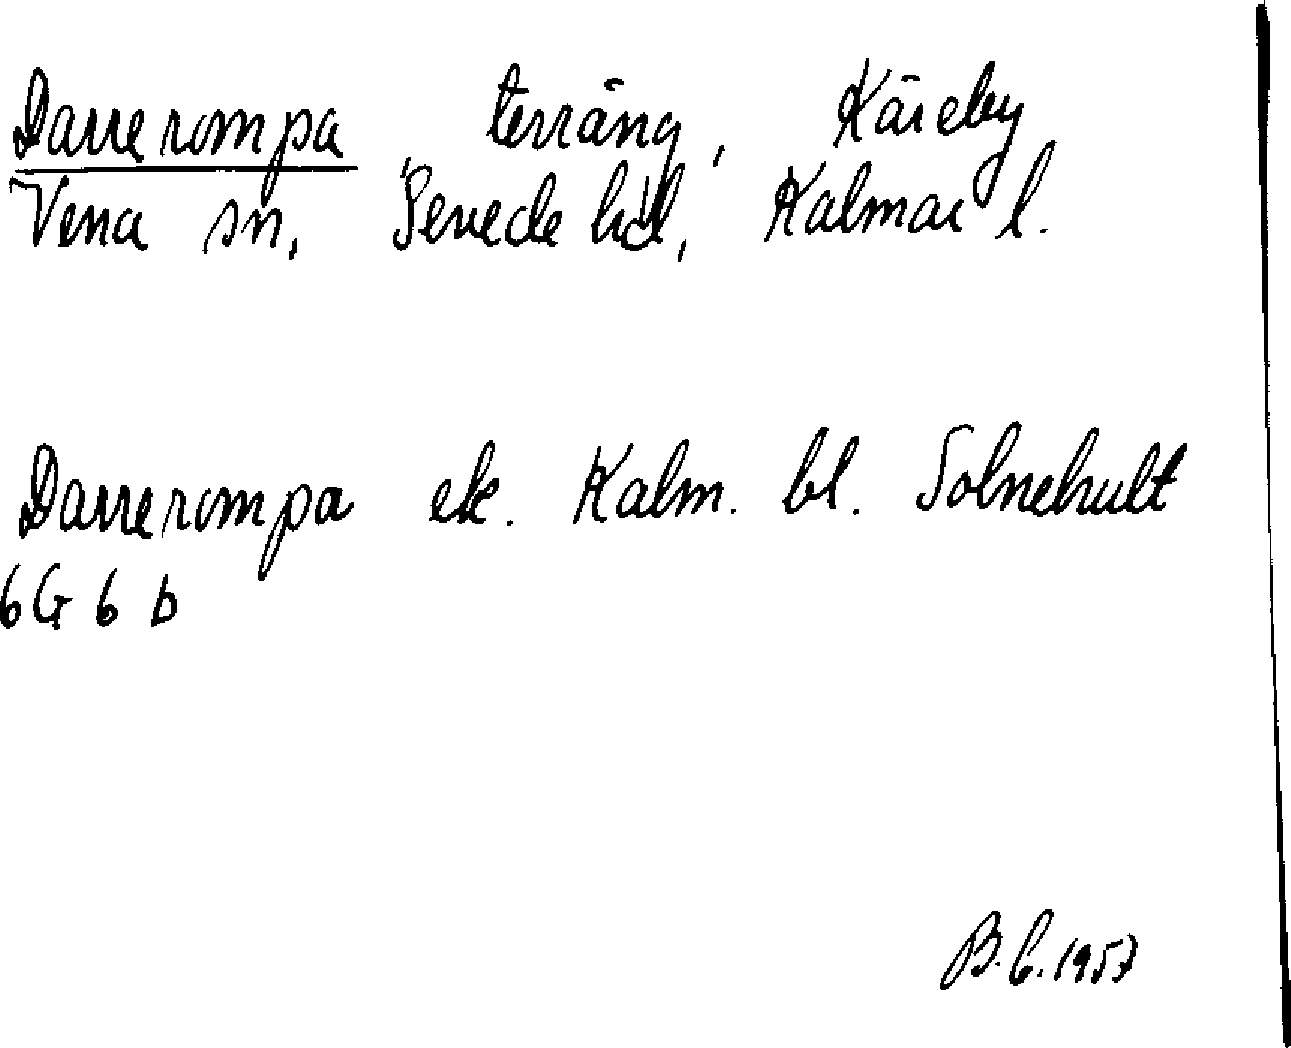 Darrerompa terräng, Käreby
Vena sn, Sevede hd, Kalmar l.
Darrerompa ek. Kalm. bl. Solnehult
6G 6 b
B.C. 1957